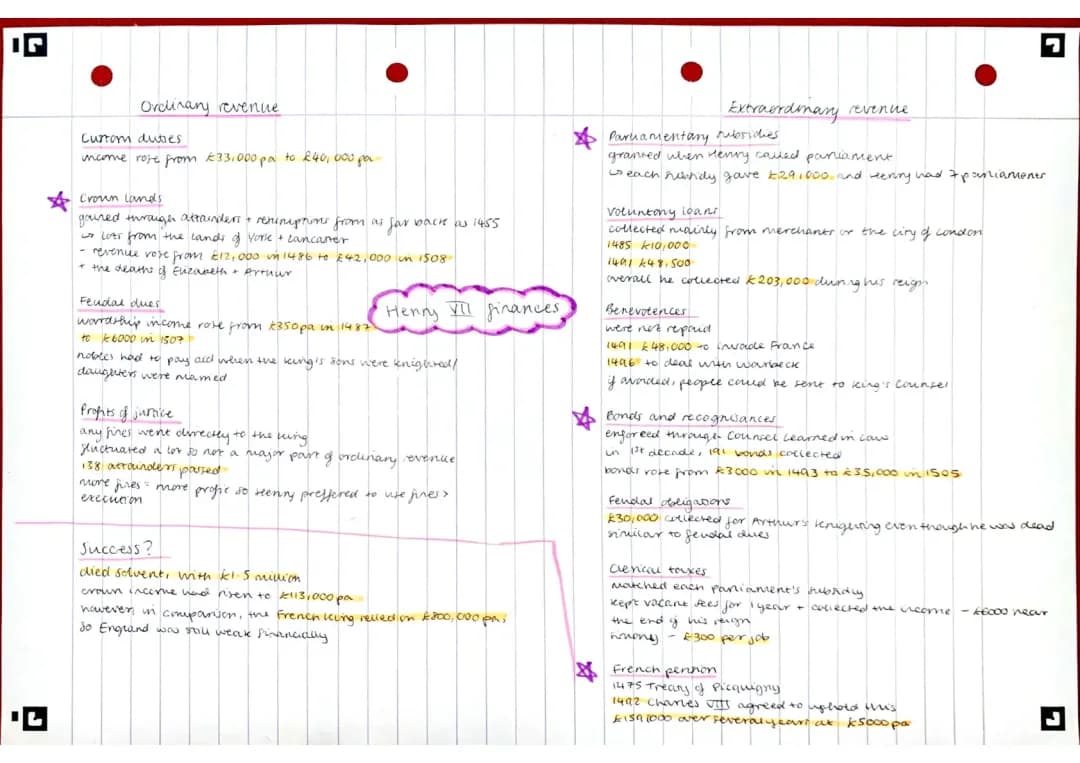 Ordinary revenue
Custom duties
income rose from £33,000 pa to £40,000 pa
Crown lands
gained through attainders + resumptions from as far back as 1455
↳ lots from the lands of York + Lancaster
- revenue rose from £12,000 in 1486 to £42,000 in 1508
+ the deaths of Elizabeth + Arthur
Feudal dues
wardship income rose from £350 pa in 1487
to £6000 in 1507
nobles had to pay aid when the king's sons were knighted/
daughters were married
Profits of justice
any fines went directly to the king
fluctuated a lot so not a major part of ordinary revenue
138 attainders passed
more fines = more profit so Henry preffered to use fines >
execution
Success?
died solvent, with £1.5 million
crown income had risen to £113,000 pa
however, in comparison, the French king relied on £800,000 pa,
so England was still weak financially
Henry VII finances
Extraordinary revenue
Parliamentary subsidies
granted when Henry called parliament
↳ each subsidy gave £29,000 and Henry had 7 parliaments
Voluntary loans
collected mainly from merchants or the city of London
1485 £10,000
1491 £48,500
overall he collected £203,000 during his reign
Benevolences
were not repaid
1491 £48,000 to invade France
1496 to deal with Warbeck
if avoided, people could be sent to King's Counsel
Bonds and recognisances
enforced through Counsel Learned in Law
in 1st decade, 191 bonds collected
bonds rose from £3000 in 1493 to £35,000 in 1505
Feudal obligations
£30,000 collected for Arthur's knighting even though he was dead
similar to feudal dues
Clerical taxes
matched each parliament's subsidy
kept vacant sees for 1 year + collected the income - £6000 near
the end of his reign
simony - £300 per job
French pension
1475 Treaty of Picquigny
1492 Charles VIII agreed to uphold this
£159,000 over several years at £5000 pa